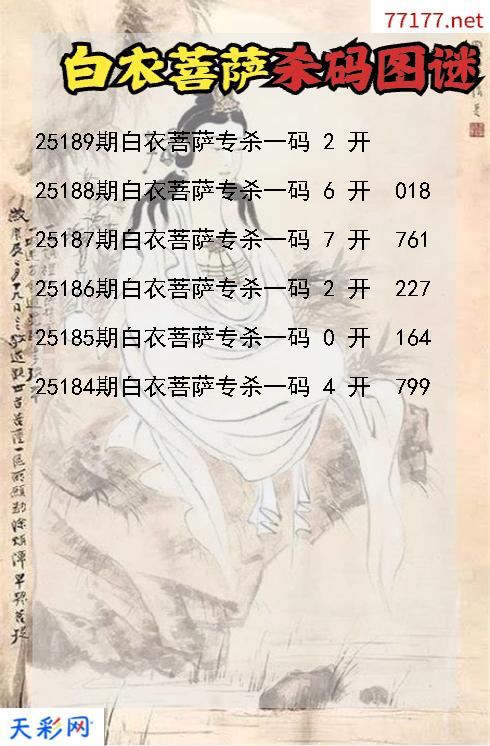 77177.net
白衣菩萨杀码图谜
25189期白衣菩萨专杀一码 2 开
25188期白衣菩萨专杀一码 6 开 018
25187期白衣菩萨专杀一码 7 开 761
25186期白衣菩萨专杀一码 2 开 227
25185期白衣菩萨专杀一码 0 开 164
25184期白衣菩萨专杀一码 4 开 799
天彩网